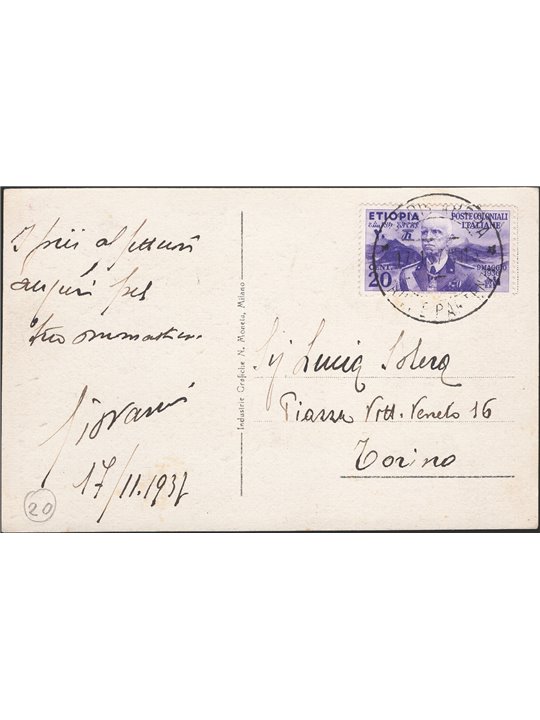 auguri pel
tuo onomastico
Giovanni
17/11.1937
20
Industrie Grafiche N. Moneta, Milano
ETIOPIA
POSTE COLONIALI
ITALIANE
CENT.
20
9 MAGGIO
1936
Lucia Solera
Piazza Vitt. Veneto 16
Torino